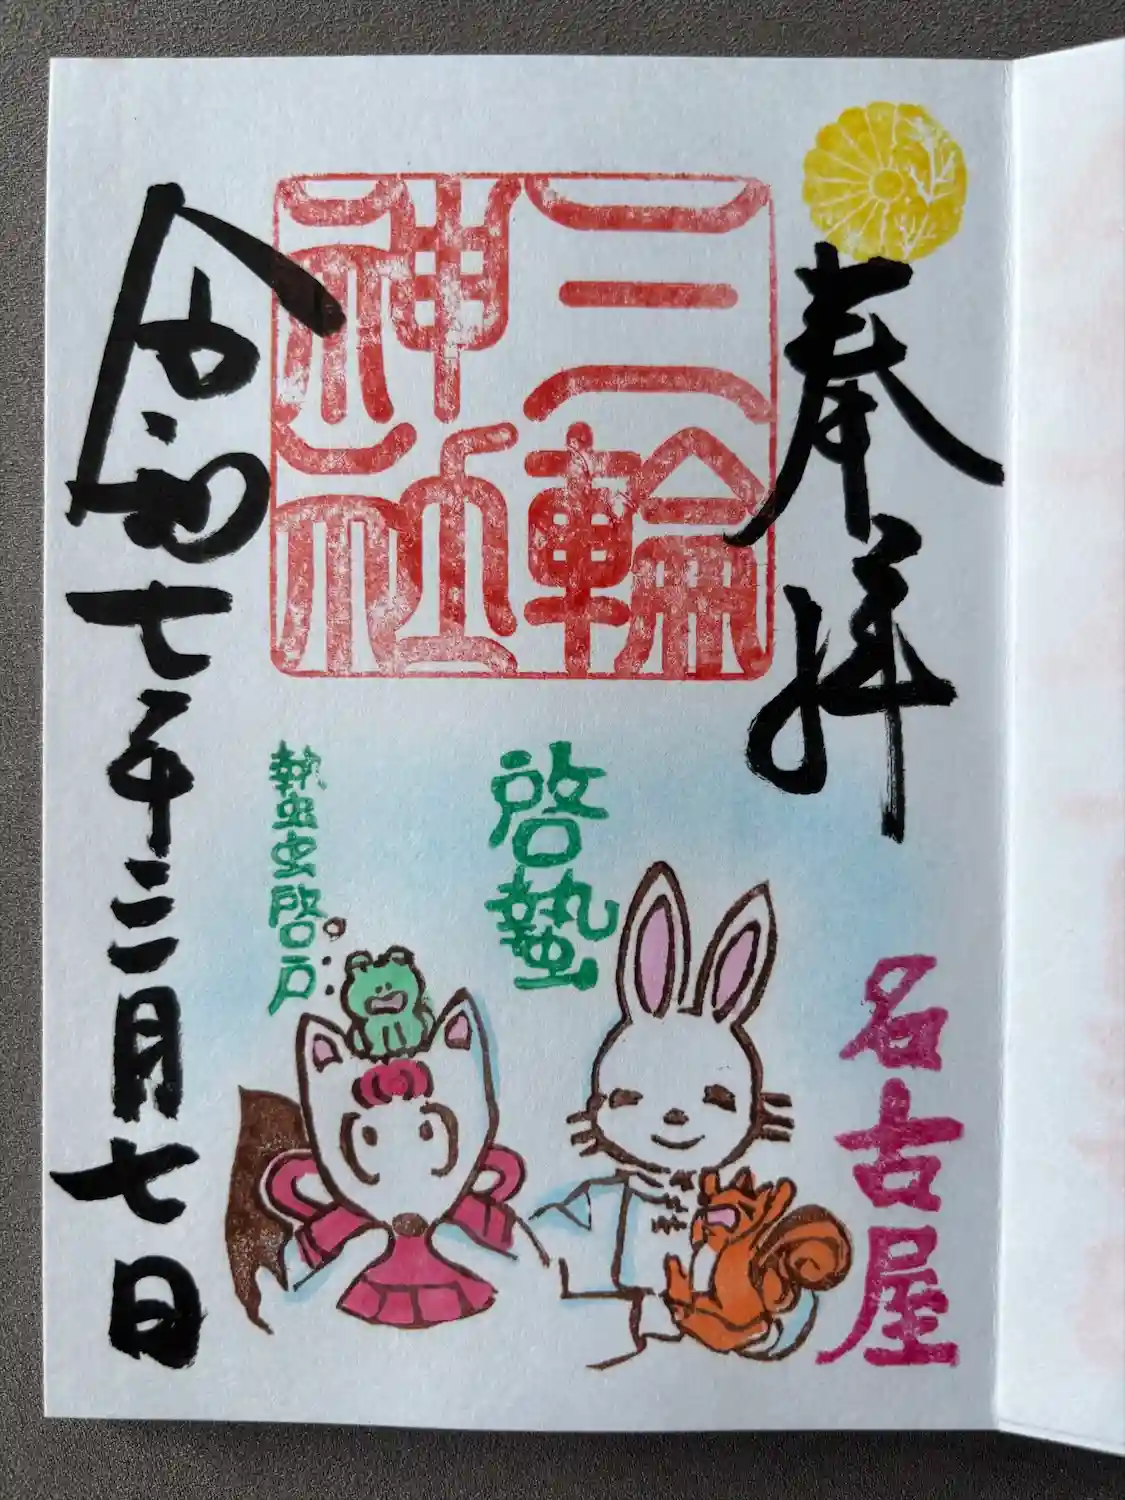 奉拝
名古屋
三輪
神社
啓蟄
蟄虫啓戸
令和七年三月七日